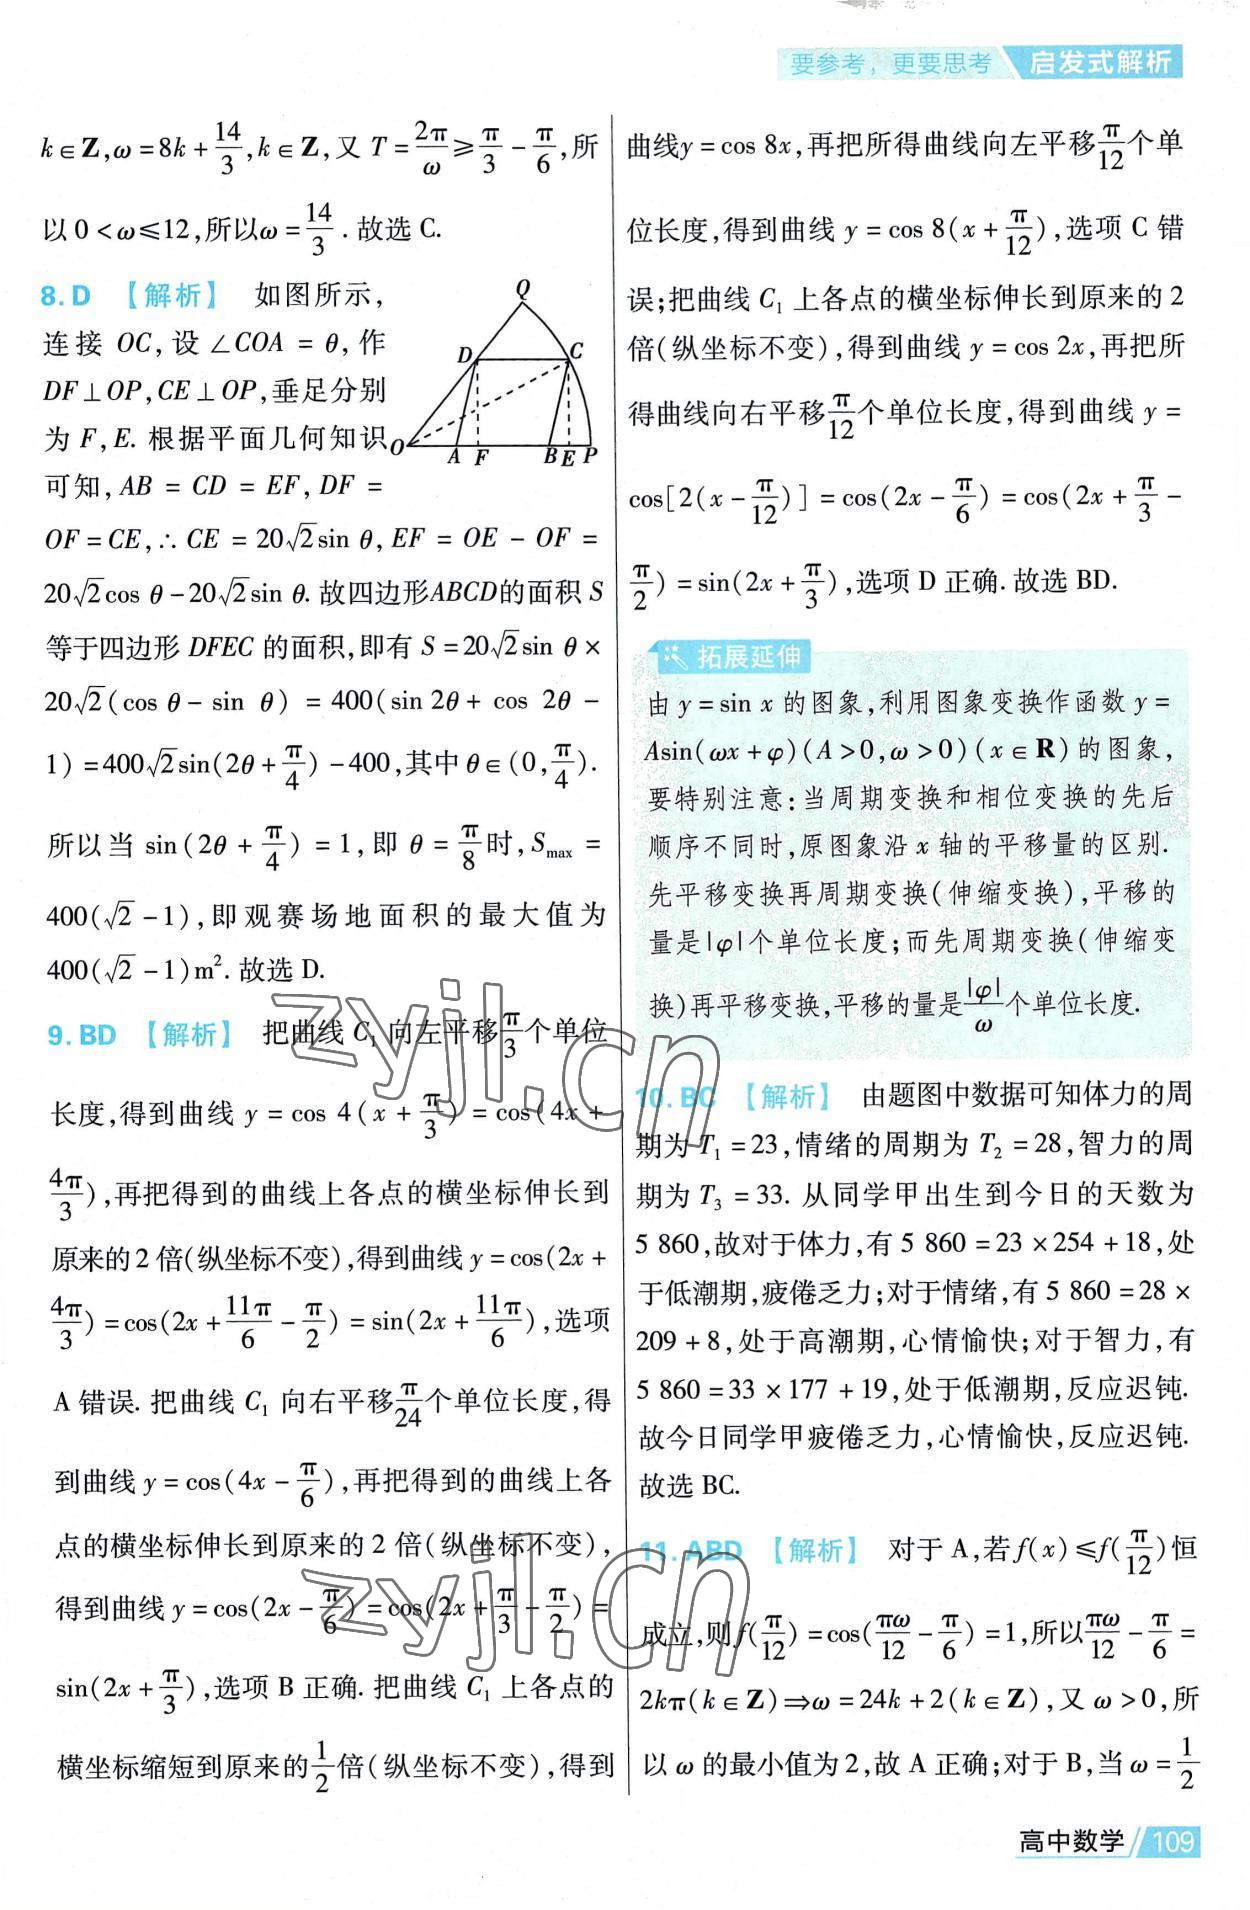 要参考，更要思考 启发式解析
k∈Z,ω=8k+14/3,k∈Z,又 T=2π/ω≥π/3-π/6,所
以 0<ω≤12,所以ω=14/3.故选 C.
8.D 【解析】 如图所示,
连接 OC,设∠COA=θ,作
DF⊥OP,CE⊥OP,垂足分别
为 F,E.根据平面几何知识
可知,AB=CD=EF,DF=
Q
D C
O A F B E P
OF=CE,∴CE=20√2sin θ,EF=OE-OF=
20√2cos θ-20√2sin θ.故四边形ABCD的面积 S
等于四边形 DFEC 的面积,即有 S=20√2sin θ×
20√2(cos θ-sin θ)=400(sin 2θ+cos 2θ-
1)=400√2sin(2θ+π/4)-400,其中θ∈(0,π/4).
所以当 sin(2θ+π/4)=1,即 θ=π/8时,Smax=
400(√2-1),即观赛场地面积的最大值为
400(√2-1)m².故选 D.
9.BD 【解析】 把曲线 C₁ 向左平移π/3个单位
长度,得到曲线 y=cos 4(x+π/3)=cos(4x+
4π/3),再把得到的曲线上各点的横坐标伸长到
原来的2倍(纵坐标不变),得到曲线 y=cos(2x+
4π/3)=cos(2x+11π/6-π/2)=sin(2x+11π/6),选项
A 错误.把曲线 C₁ 向右平移π/24个单位长度,得
到曲线 y=cos(4x-π/6),再把得到的曲线上各
点的横坐标伸长到原来的 2 倍(纵坐标不变),
得到曲线 y=cos(2x-π/6)=cos(2x+π/3-π/2)=
sin(2x+π/3),选项 B 正确.把曲线 C₁ 上各点的
横坐标缩短到原来的1/2倍(纵坐标不变),得到
曲线y=cos 8x,再把所得曲线向左平移π/12个单
位长度,得到曲线 y=cos 8(x+π/12),选项 C 错
误;把曲线 C₁ 上各点的横坐标伸长到原来的 2
倍(纵坐标不变),得到曲线 y=cos 2x,再把所
得曲线向右平移π/12个单位长度,得到曲线 y=
cos[2(x-π/12)]=cos(2x-π/6)=cos(2x+π/3-
π/2)=sin(2x+π/3),选项 D 正确.故选 BD.
拓展延伸
由 y=sin x 的图象,利用图象变换作函数 y=
Asin(ωx+φ)(A>0,ω>0)(x∈R)的图象,
要特别注意:当周期变换和相位变换的先后
顺序不同时,原图象沿 x 轴的平移量的区别.
先平移变换再周期变换(伸缩变换),平移的
量是|φ|个单位长度;而先周期变换(伸缩变
换)再平移变换,平移的量是|φ|/ω个单位长度.
10.BC 【解析】 由题图中数据可知体力的周
期为 T₁=23,情绪的周期为 T₂=28,智力的周
期为 T₃=33.从同学甲出生到今日的天数为
5 860,故对于体力,有 5 860=23×254+18,处
于低潮期,疲倦乏力;对于情绪,有 5 860=28×
209+8,处于高潮期,心情愉快;对于智力,有
5 860=33×177+19,处于低潮期,反应迟钝.
故今日同学甲疲倦乏力,心情愉快,反应迟钝.
故选 BC.
11.ABD 【解析】 对于 A,若 f(x)≤f(π/12)恒
成立,则f(π/12)=cos(πω/12-π/6)=1,所以πω/12-π/6=
2kπ(k∈Z)⇒ω=24k+2(k∈Z),又 ω>0,所
以 ω 的最小值为 2,故 A 正确;对于 B,当 ω=1/2
高中数学 109
zyjl.cn
zyjl.cn